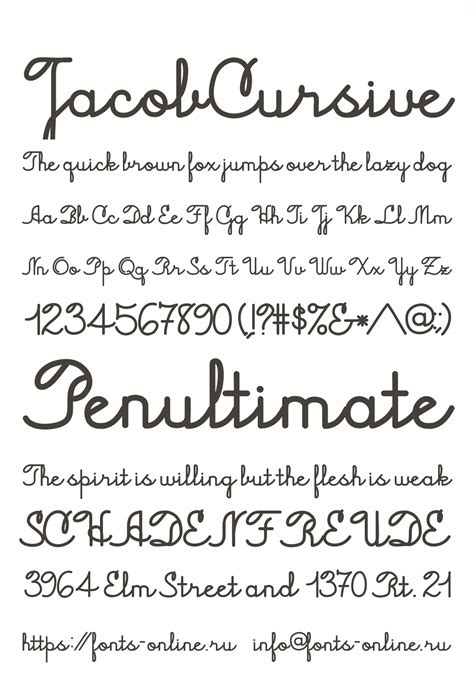 JacobCursive
The quick brown fox jumps over the lazy dog
Aa Bb Cc Dd Ee Ff Gg Hh Ii Jj Kk Ll Mm
Nn Oo Pp Qq Rr Ss Tt Uu Vv Ww Xx Yy Zz
1234567890(!?#$%&*/\@;,:)
Penultimate
The spirit is willing but the flesh is weak
SCHADENFREUDE
3964 Elm Street and 1370 Rt. 21
https://fonts-online.ru info@fonts-online.ru